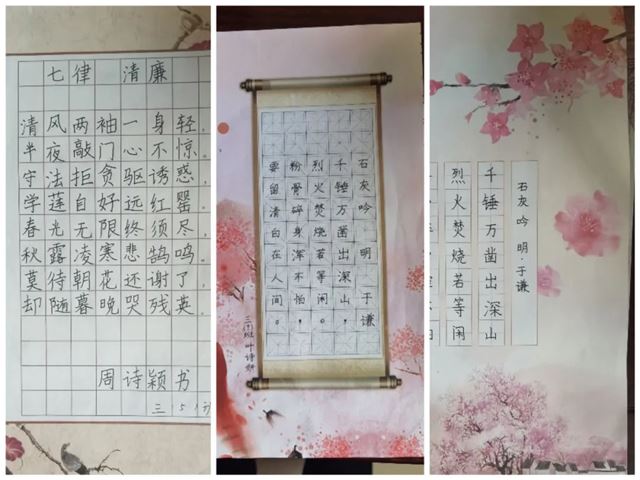 七律 清廉
清风两袖一身轻，
半夜敲门心不惊。
守法拒贪驱诱惑，
学莲自好远红罂。
春光无限终须尽，
秋露凌寒悲鹄鸣。
莫待朝花还谢了，
却随暮晚哭残英。
周诗颖书
石灰吟 明 于谦
千锤万凿出深山，
烈火焚烧若等闲。
粉骨碎身浑不怕，
要留清白在人间。
石灰吟 明·于谦
千锤万凿出深山
烈火焚烧若等闲